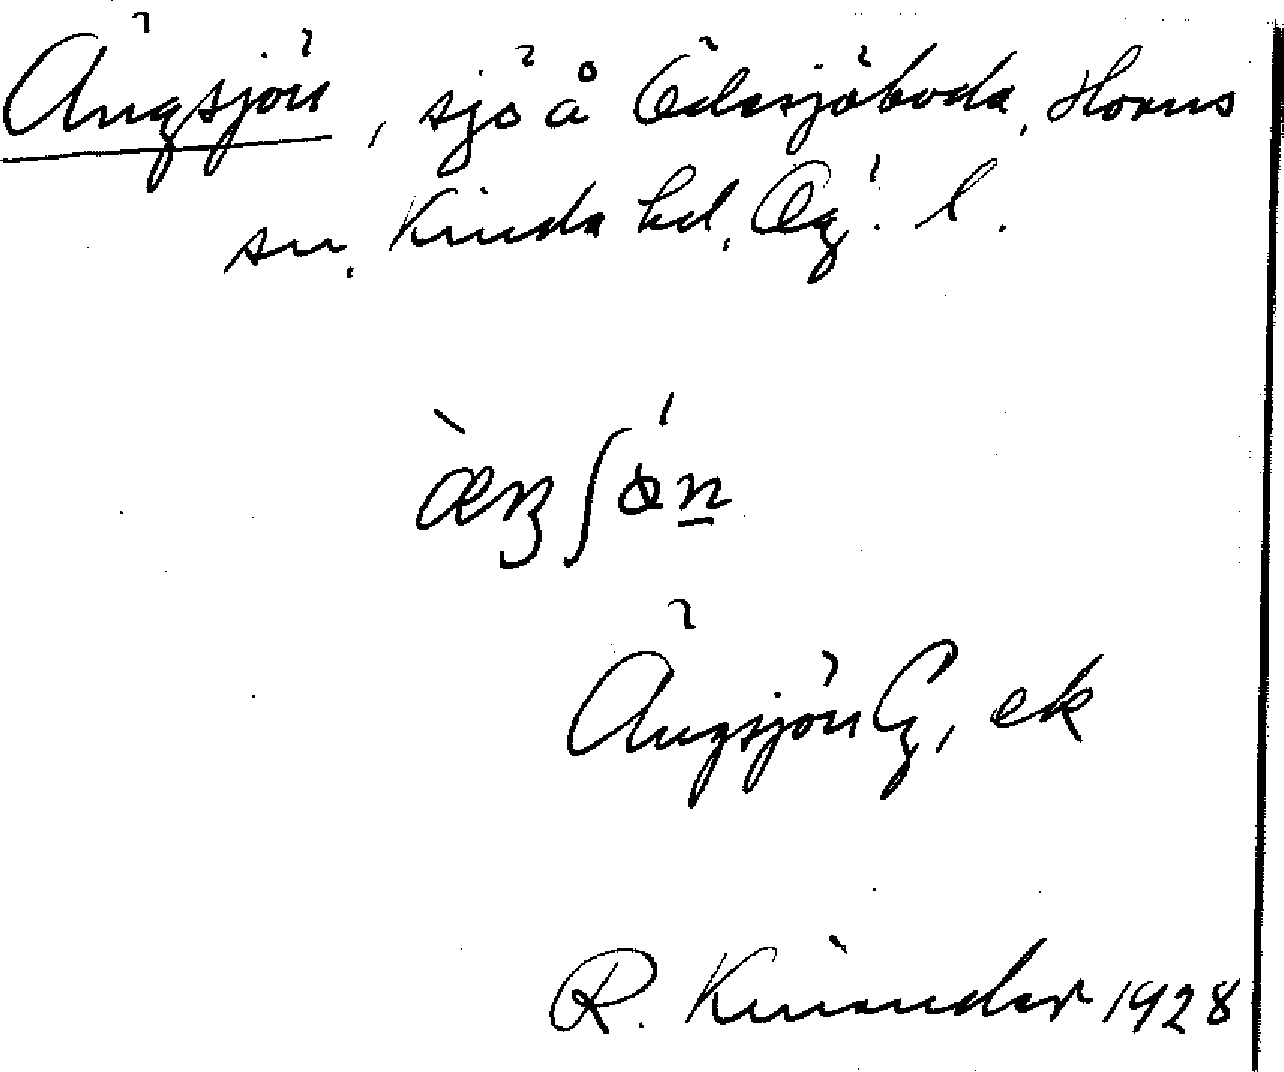 Ängsjön, sjö å Ödesjöboda, Horns
sn, Kinda hd, Ög. l.
æŋʃön
Ängsjön G, ek
R. Kinander 1928